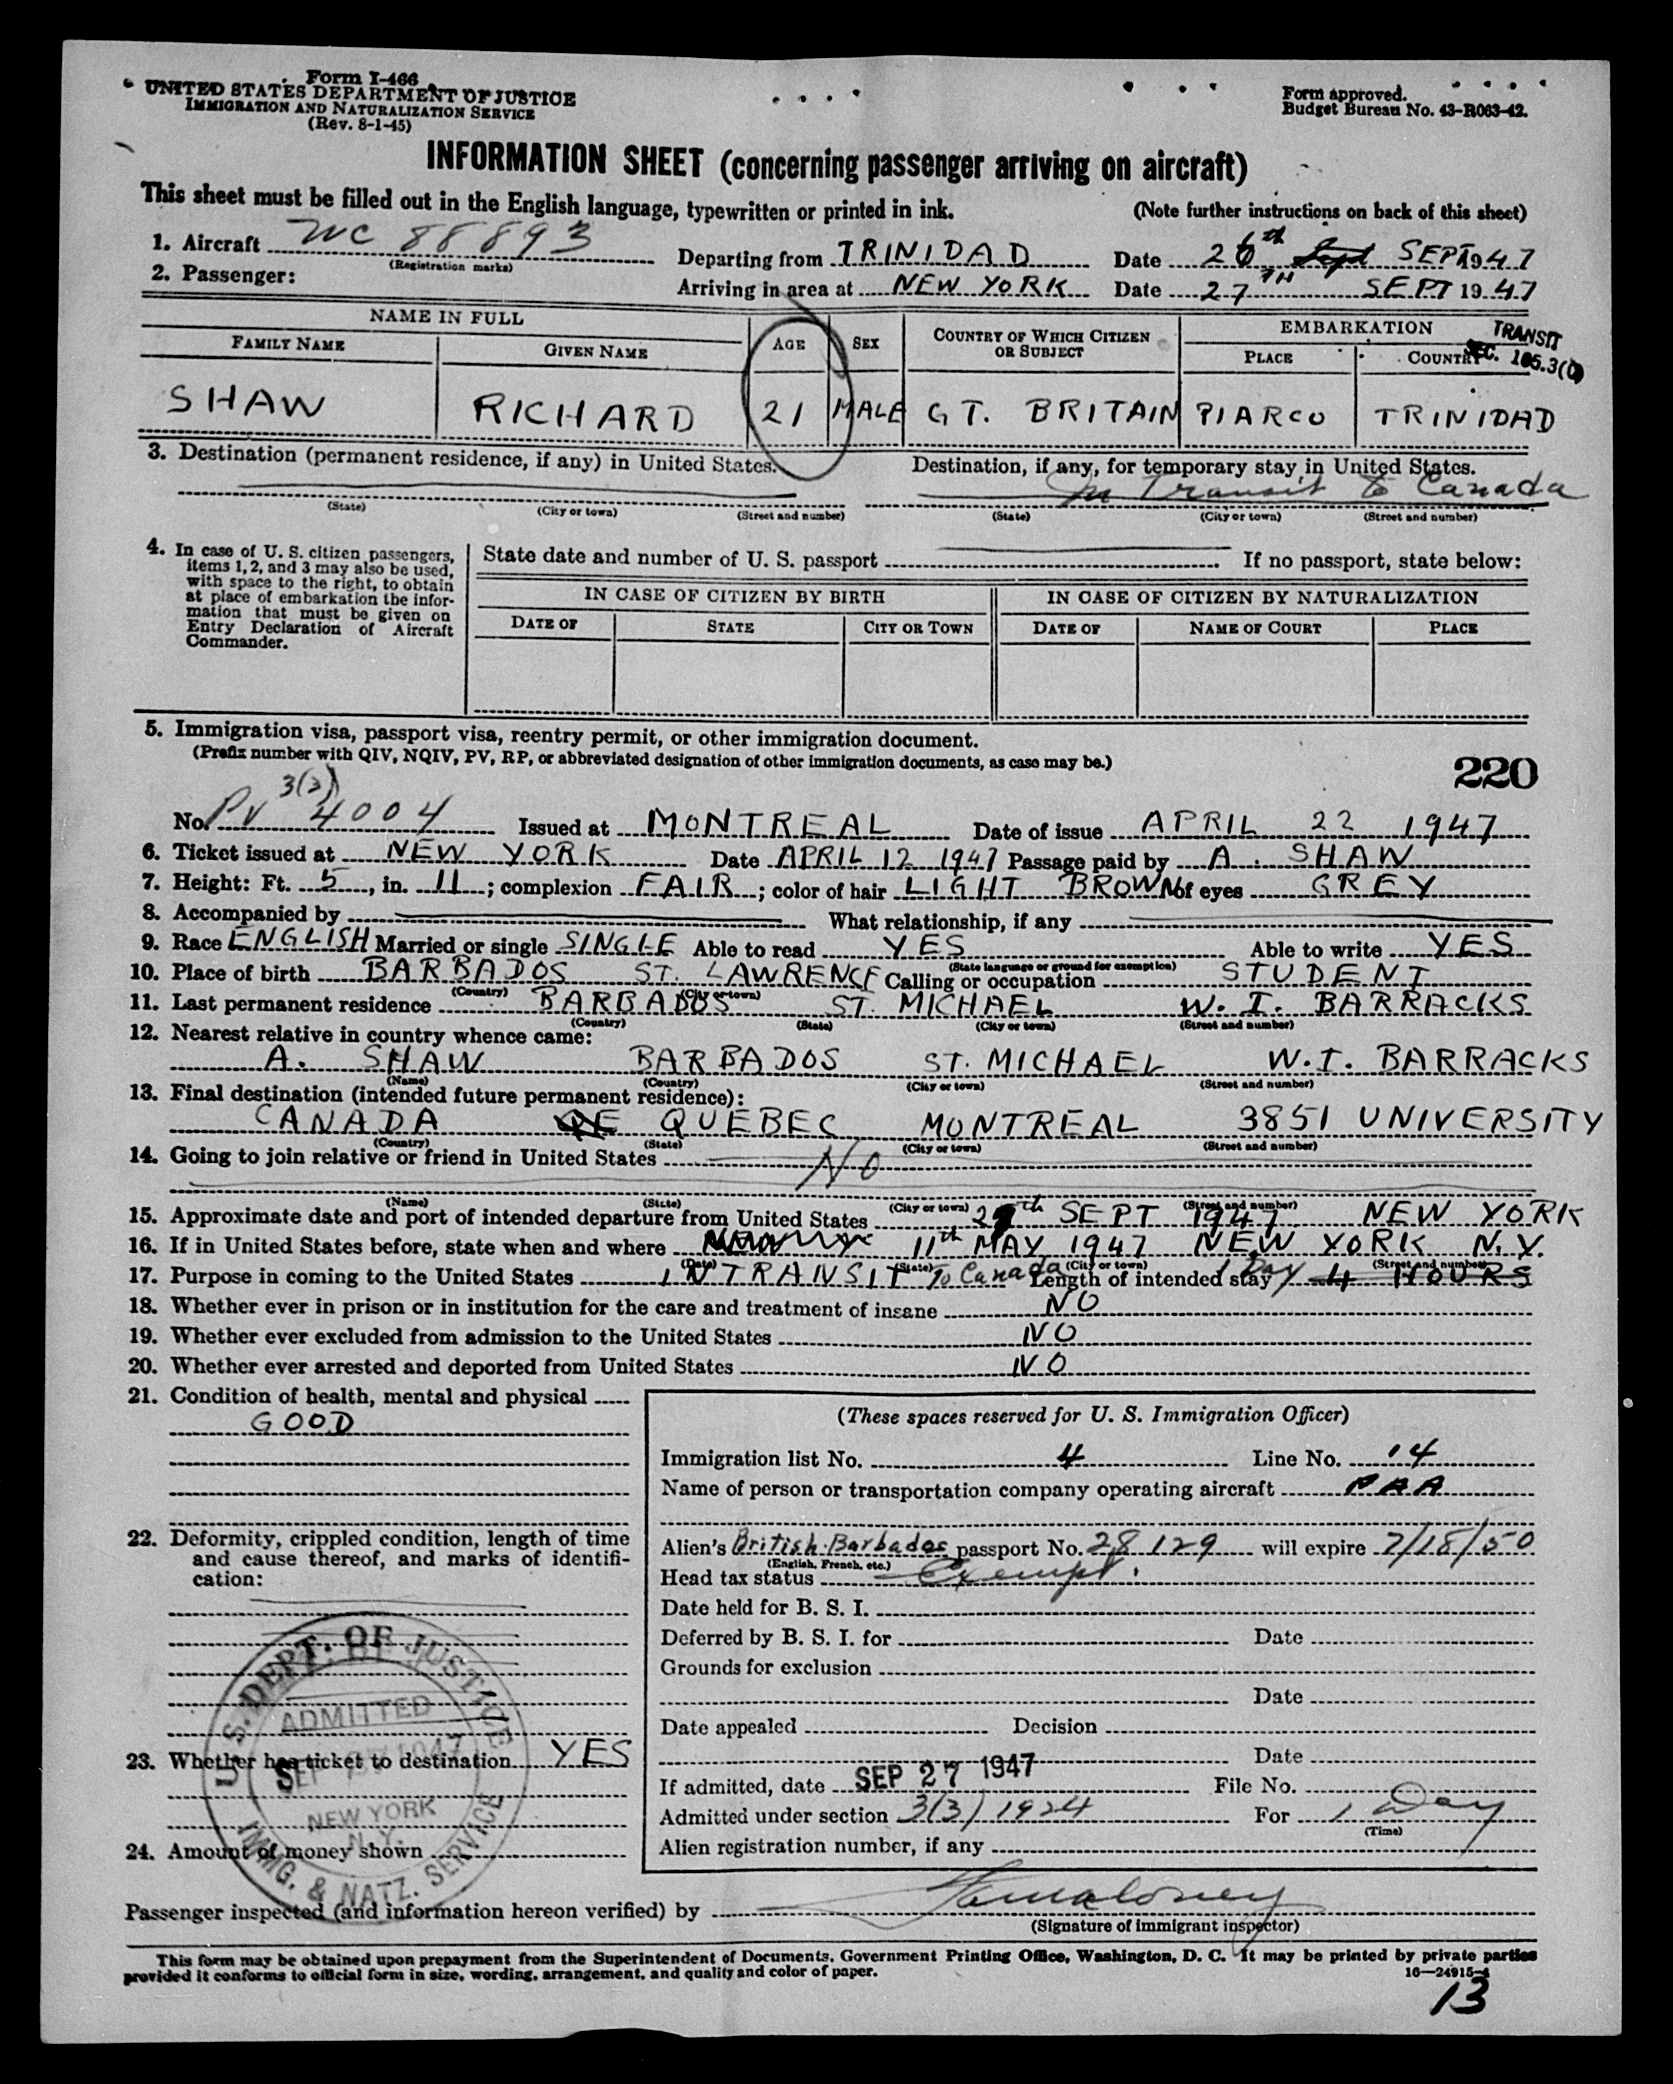 Form I-466
UNITED STATES DEPARTMENT OF JUSTICE
IMMIGRATION AND NATURALIZATION SERVICE
(Rev. 8-1-45)
Form approved.
Budget Bureau No. 43-R063-42.
INFORMATION SHEET (concerning passenger arriving on aircraft)
This sheet must be filled out in the English language, typewritten or printed in ink. (Note further instructions on back of this sheet)
1. Aircraft NC 88893 Departing from TRINIDAD Date 26th SEPT 1947
(Registration marks)
2. Passenger: Arriving in area at NEW YORK Date 27TH SEPT 1947
NAME IN FULL AGE SEX COUNTRY OF WHICH CITIZEN OR SUBJECT EMBARKATION
TRANSIT
SEC. 165.3(
FAMILY NAME GIVEN NAME PLACE COUNTRY
SHAW RICHARD 21 MALE GT. BRITAIN PIARCO TRINIDAD
3. Destination (permanent residence, if any) in United States. Destination, if any, for temporary stay in United States.
In Transit to Canada
(State) (City or town) (Street and number) (State) (City or town) (Street and number)
4. In case of U. S. citizen passengers,
items 1, 2, and 3 may also be used,
with space to the right, to obtain
at place of embarkation the infor-
mation that must be given on
Entry Declaration of Aircraft
Commander.
State date and number of U. S. passport If no passport, state below:
IN CASE OF CITIZEN BY BIRTH IN CASE OF CITIZEN BY NATURALIZATION
DATE OF STATE CITY OR TOWN DATE OF NAME OF COURT PLACE
5. Immigration visa, passport visa, reentry permit, or other immigration document.
(Prefix number with QIV, NQIV, PV, RP, or abbreviated designation of other immigration documents, as case may be.)
220
3(3)
No. PV 4004 Issued at MONTREAL Date of issue APRIL 22 1947
6. Ticket issued at NEW YORK Date APRIL 12 1947 Passage paid by A. SHAW
7. Height: Ft. 5, in. 11; complexion FAIR; color of hair LIGHT BROWN of eyes GREY
8. Accompanied by What relationship, if any
9. Race ENGLISH Married or single SINGLE Able to read YES Able to write YES
(State language or ground for exemption)
10. Place of birth BARBADOS ST. LAWRENCE Calling or occupation STUDENT
(Country) (City or town)
11. Last permanent residence BARBADOS ST. MICHAEL W. I. BARRACKS
(Country) (State) (City or town) (Street and number)
12. Nearest relative in country whence came:
A. SHAW BARBADOS ST. MICHAEL W.I. BARRACKS
(Name) (Country) (City or town) (Street and number)
13. Final destination (intended future permanent residence):
CANADA QUEBEC MONTREAL 3851 UNIVERSITY
(Country) (State) (City or town) (Street and number)
14. Going to join relative or friend in United States NO
(Name) (State) (City or town) (Street and number)
15. Approximate date and port of intended departure from United States th SEPT 1947 NEW YORK
16. If in United States before, state when and where 11th MAY 1947 NEW YORK N.Y.
(Date) (State) (City or town) (Street and number)
17. Purpose in coming to the United States INTRANSIT To Canada Length of intended stay 1 Day 4 HOURS
18. Whether ever in prison or in institution for the care and treatment of insane NO
19. Whether ever excluded from admission to the United States NO
20. Whether ever arrested and deported from United States NO
21. Condition of health, mental and physical
GOOD
22. Deformity, crippled condition, length of time
and cause thereof, and marks of identifi-
cation:
U. S. DEPT. OF JUSTICE
ADMITTED
SEP 27 1947
NEW YORK
N. Y.
IMMG. & NATZ. SERVICE
23. Whether has ticket to destination YES
24. Amount of money shown
(These spaces reserved for U. S. Immigration Officer)
Immigration list No. 4 Line No. 14
Name of person or transportation company operating aircraft PAA
Alien's British-Barbados passport No. 28129 will expire 7/18/50
(English, French, etc.)
Head tax status Exempt
Date held for B. S. I.
Deferred by B. S. I. for Date
Grounds for exclusion
Date
Date appealed Decision
Date
If admitted, date SEP 27 1947 File No.
Admitted under section 3(3) 1924 For 1 Day
(Time)
Alien registration number, if any
Passenger inspected (and information hereon verified) by
(Signature of immigrant inspector)
This form may be obtained upon prepayment from the Superintendent of Documents, Government Printing Office, Washington, D. C. It may be printed by private parties
provided it conforms to official form in size, wording, arrangement, and quality and color of paper.
16—24915-4
13